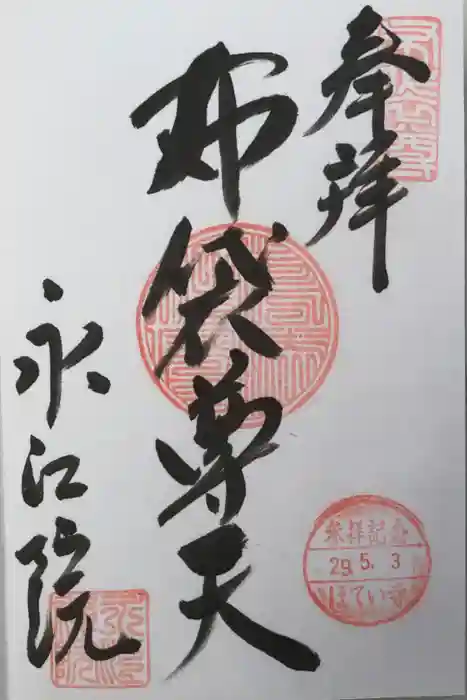 奉拝
布袋尊天
永江院
参拝記念
29.5.3
ほてい寺